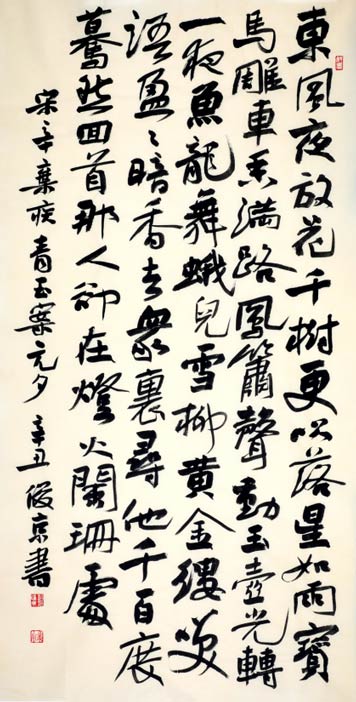 東風夜放花千樹更吹落星如雨寶
馬雕車香滿路鳳簫聲動玉壺光轉
一夜魚龍舞蛾兒雪柳黃金縷笑
語盈〻暗香去眾裏尋他千百度
驀然回首那人卻在燈火闌珊處
宋辛棄疾青玉案元夕 辛丑 京書